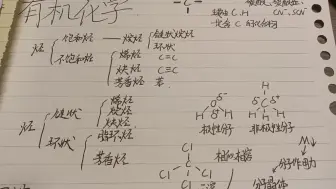 有机化学
主要 C.H
一定含 C
烃
饱和烃 — 烷烃
链状烷烃
环状
不饱和烃
烯烃 C=C
炔烃 C≡C
芳香烃 苯.
烃
链状
烯烃
烷烃
炔烃
环状
脂环烃
芳香烃
H H
O
δ⁻
极性分子
H
C
H H
非极性分子
相似相溶
Cl
Cl C Cl
Cl
M↓
分子作用力